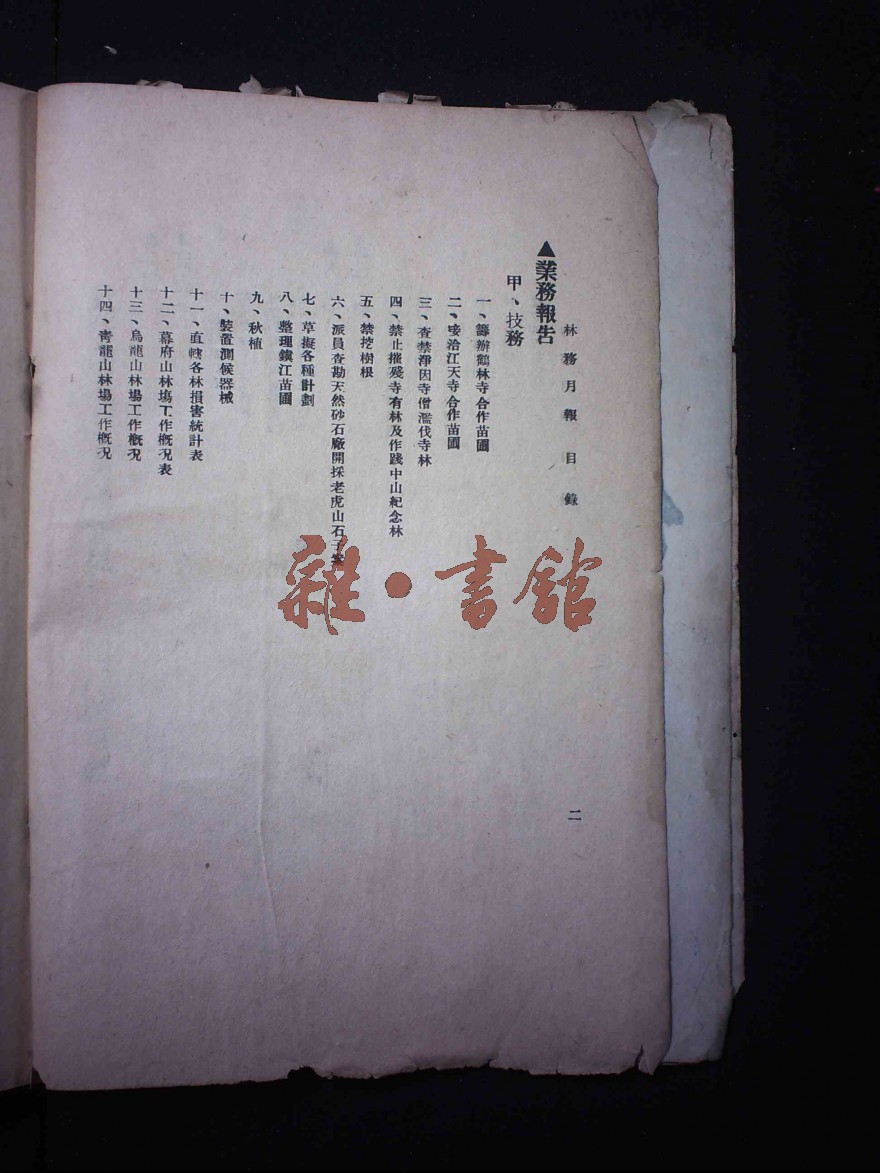 林務月報 目錄
二
▲業務報告
甲、技務
一、籌辦鶴林寺合作苗圃
二、接洽江天寺合作苗圃
三、查禁淨因寺僧濫伐寺林
四、禁止摧殘寺有林及作踐中山紀念林
五、禁挖樹根
六、派員查勘天然砂石廠開採老虎山石子案
七、草擬各種計劃
八、整理鎮江苗圃
九、秋植
十、裝置測候器械
十一、直轄各林損害統計表
十二、幕府山林塲工作概况表
十三、烏龍山林場工作概况
十四、青龍山林場工作概况
雜·書館